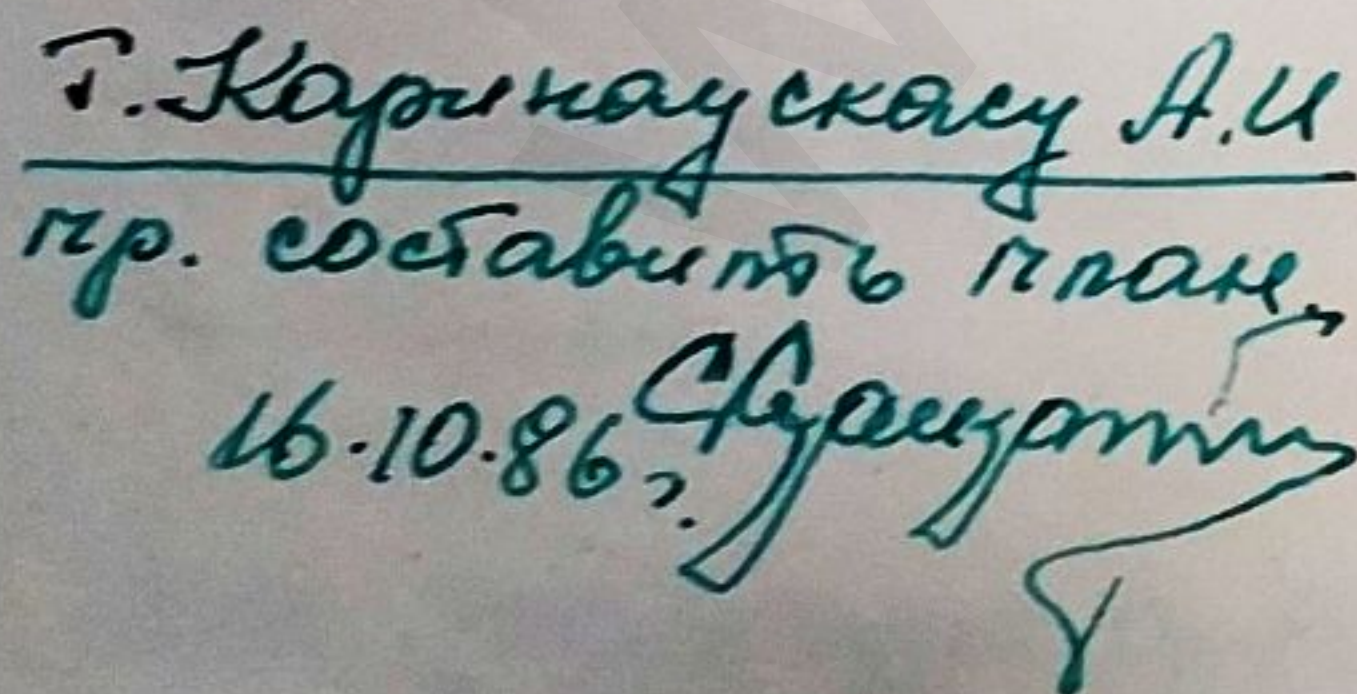 Т. Каринаускасу А.И
пр. составить план.
16.10.86г.